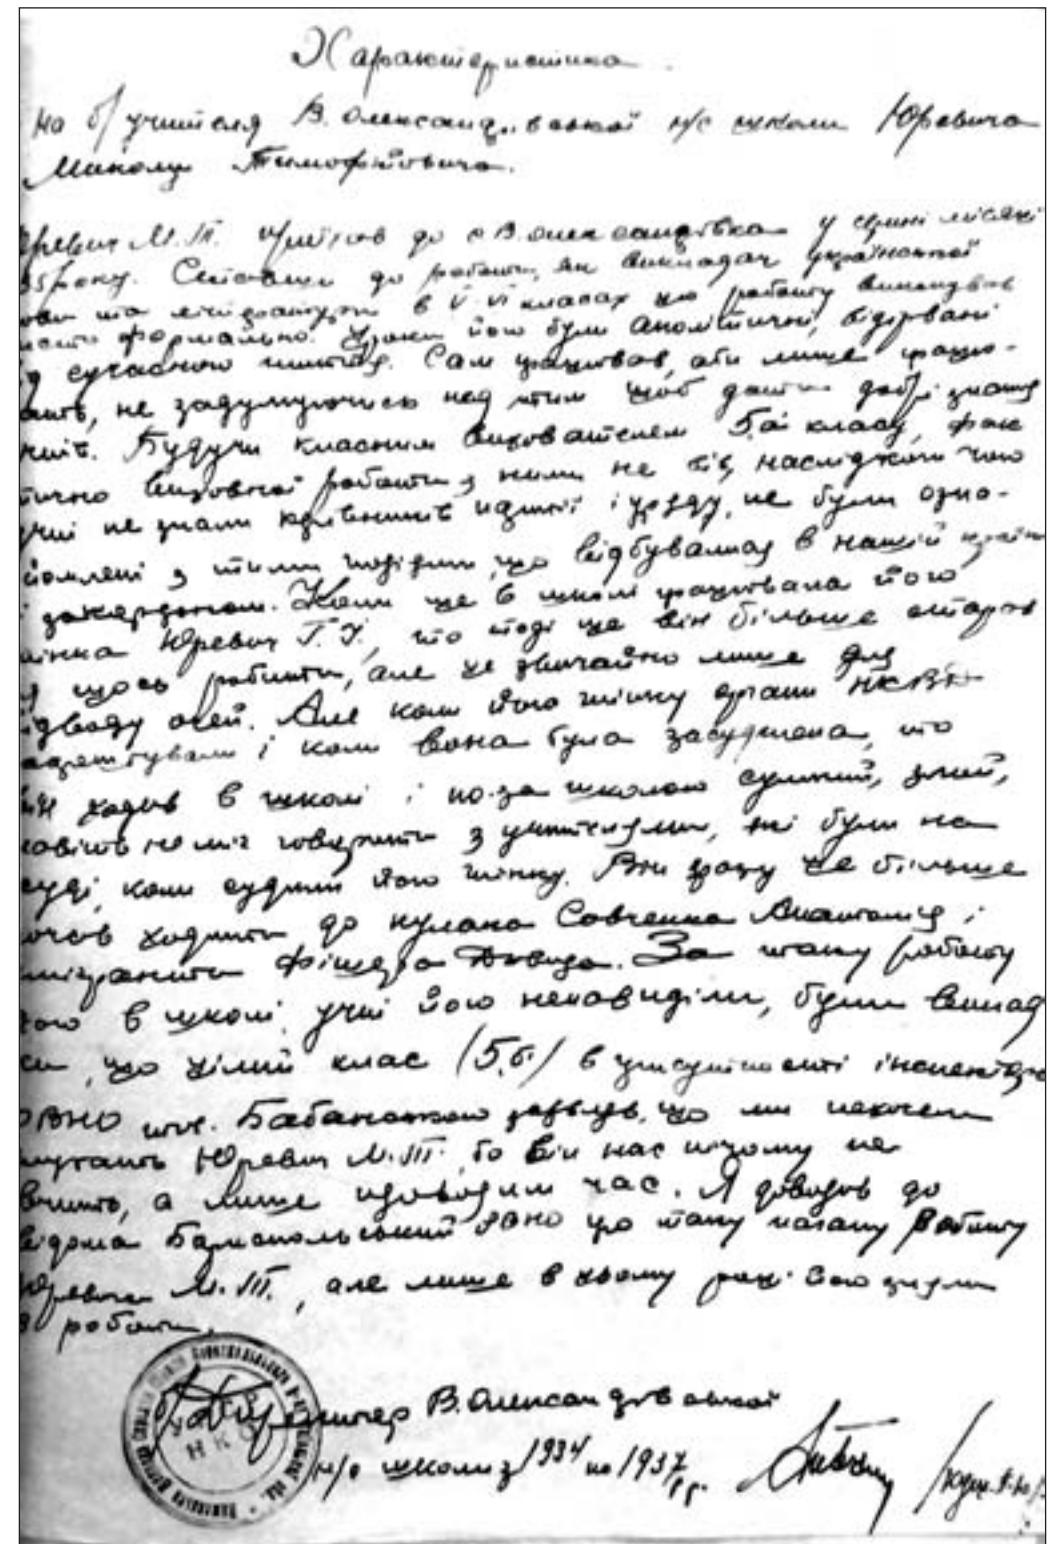 Характеристика
на б/учителя В. Олександрівської н/с школи Юревича
Миколи Тимофійовича.
Юревич М.Т. приїхав до с В. Олександрівка у серпні місяці
35 року. Ставши до роботи, як викладач української
мови та літератури в V-VI класах цю роботу виконував
чисто формально. Уроки його були аполітичні, відірвані
від сучасного життя. Сам працював, аби лише працю-
вать, не задумуючись над тим щоб дати добрі знання
учнів. Будучи класним вихователем 5.а класу, фак
тично виховної роботи з ними не вів, наслідком чого
учні не знали керівників партії і уряду, не були озна-
йомлені з тими подіями, що відбувалися в нашій країні
і закордоном. Коли ще в школі працювала його
жінка Юревич Г.У., то тоді ще він більше старав
ся щось робити, але це звичайно лише для
відводу очей. Але коли його жінку органи НКВД
арештували і коли вона була засуджена, то
він ходив в школі і по-за школою сумний, злий,
навіть не міг говорити з учителями, які були на
суді, коли судили його жінку. Він зразу ще більше
почав ходити до кулака Савченка Анатолія і
емігранта Фішера Давида. За таку роботу
його в школі учні його ненавиділи, були випад
ки, що цілий клас (5.б.) в присутності інспектора
РВНО тов. Бабанською заявляв, що ми нехочем
слухать Юревич М.Т., бо він нас нічому не
вчить, а лише проводим час. Я доводив до
відома Барсопольський РВНО про таку погану роботу
Юревич М.Т., але лише в цьому році його зняли
з роботи.
Директор В. Олександрівської
н/с школи з 1934 по 1937 рр.